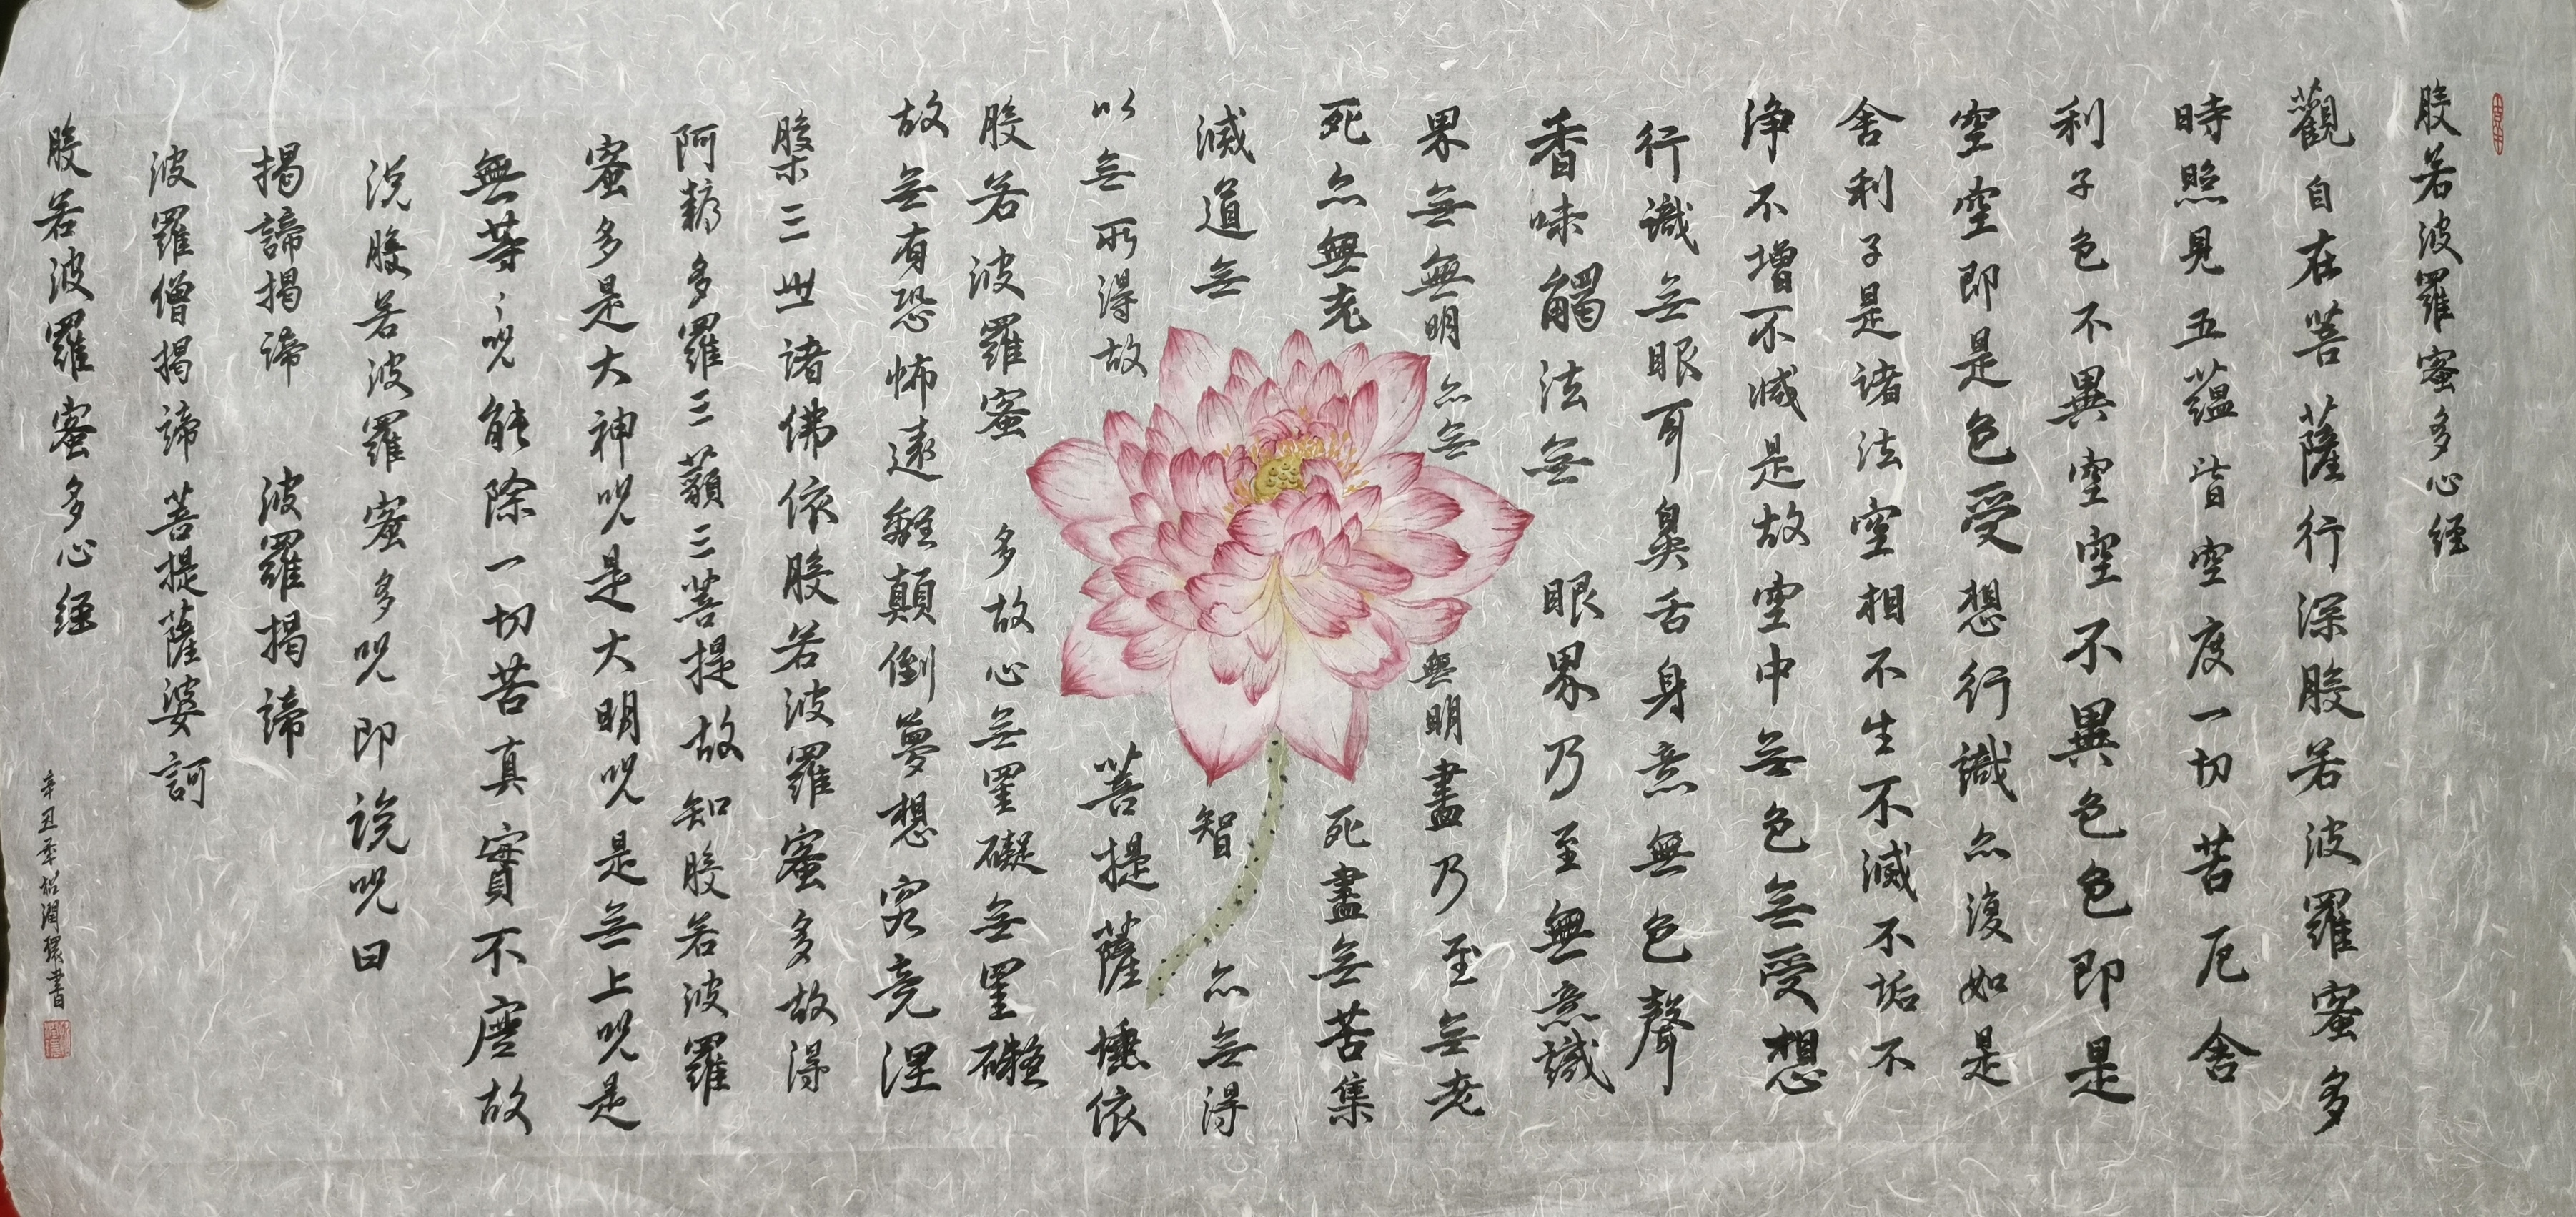 般若波羅蜜多心經
觀自在菩薩行深般若波羅蜜多
時照見五蘊皆空度一切苦厄舍
利子色不異空空不異色色即是
空空即是色受想行識亦復如是
舍利子是諸法空相不生不滅不垢不
淨不增不減是故空中無色無受想
行識無眼耳鼻舌身意無色聲
香味觸法無眼界乃至無意識
界無無明亦無無明盡乃至無老
死亦無老死盡無苦集
滅道無智亦無得
以無所得故菩提薩埵依
般若波羅蜜多故心無罣礙無罣礙
故無有恐怖遠離顛倒夢想究竟涅
槃三世諸佛依般若波羅蜜多故得
阿耨多羅三藐三菩提故知般若波羅
蜜多是大神咒是大明咒是無上咒是
無等々咒能除一切苦真實不虛故
說般若波羅蜜多咒即說咒曰
揭諦揭諦波羅揭諦
波羅僧揭諦菩提薩婆訶
般若波羅蜜多心經
辛丑年潤環書